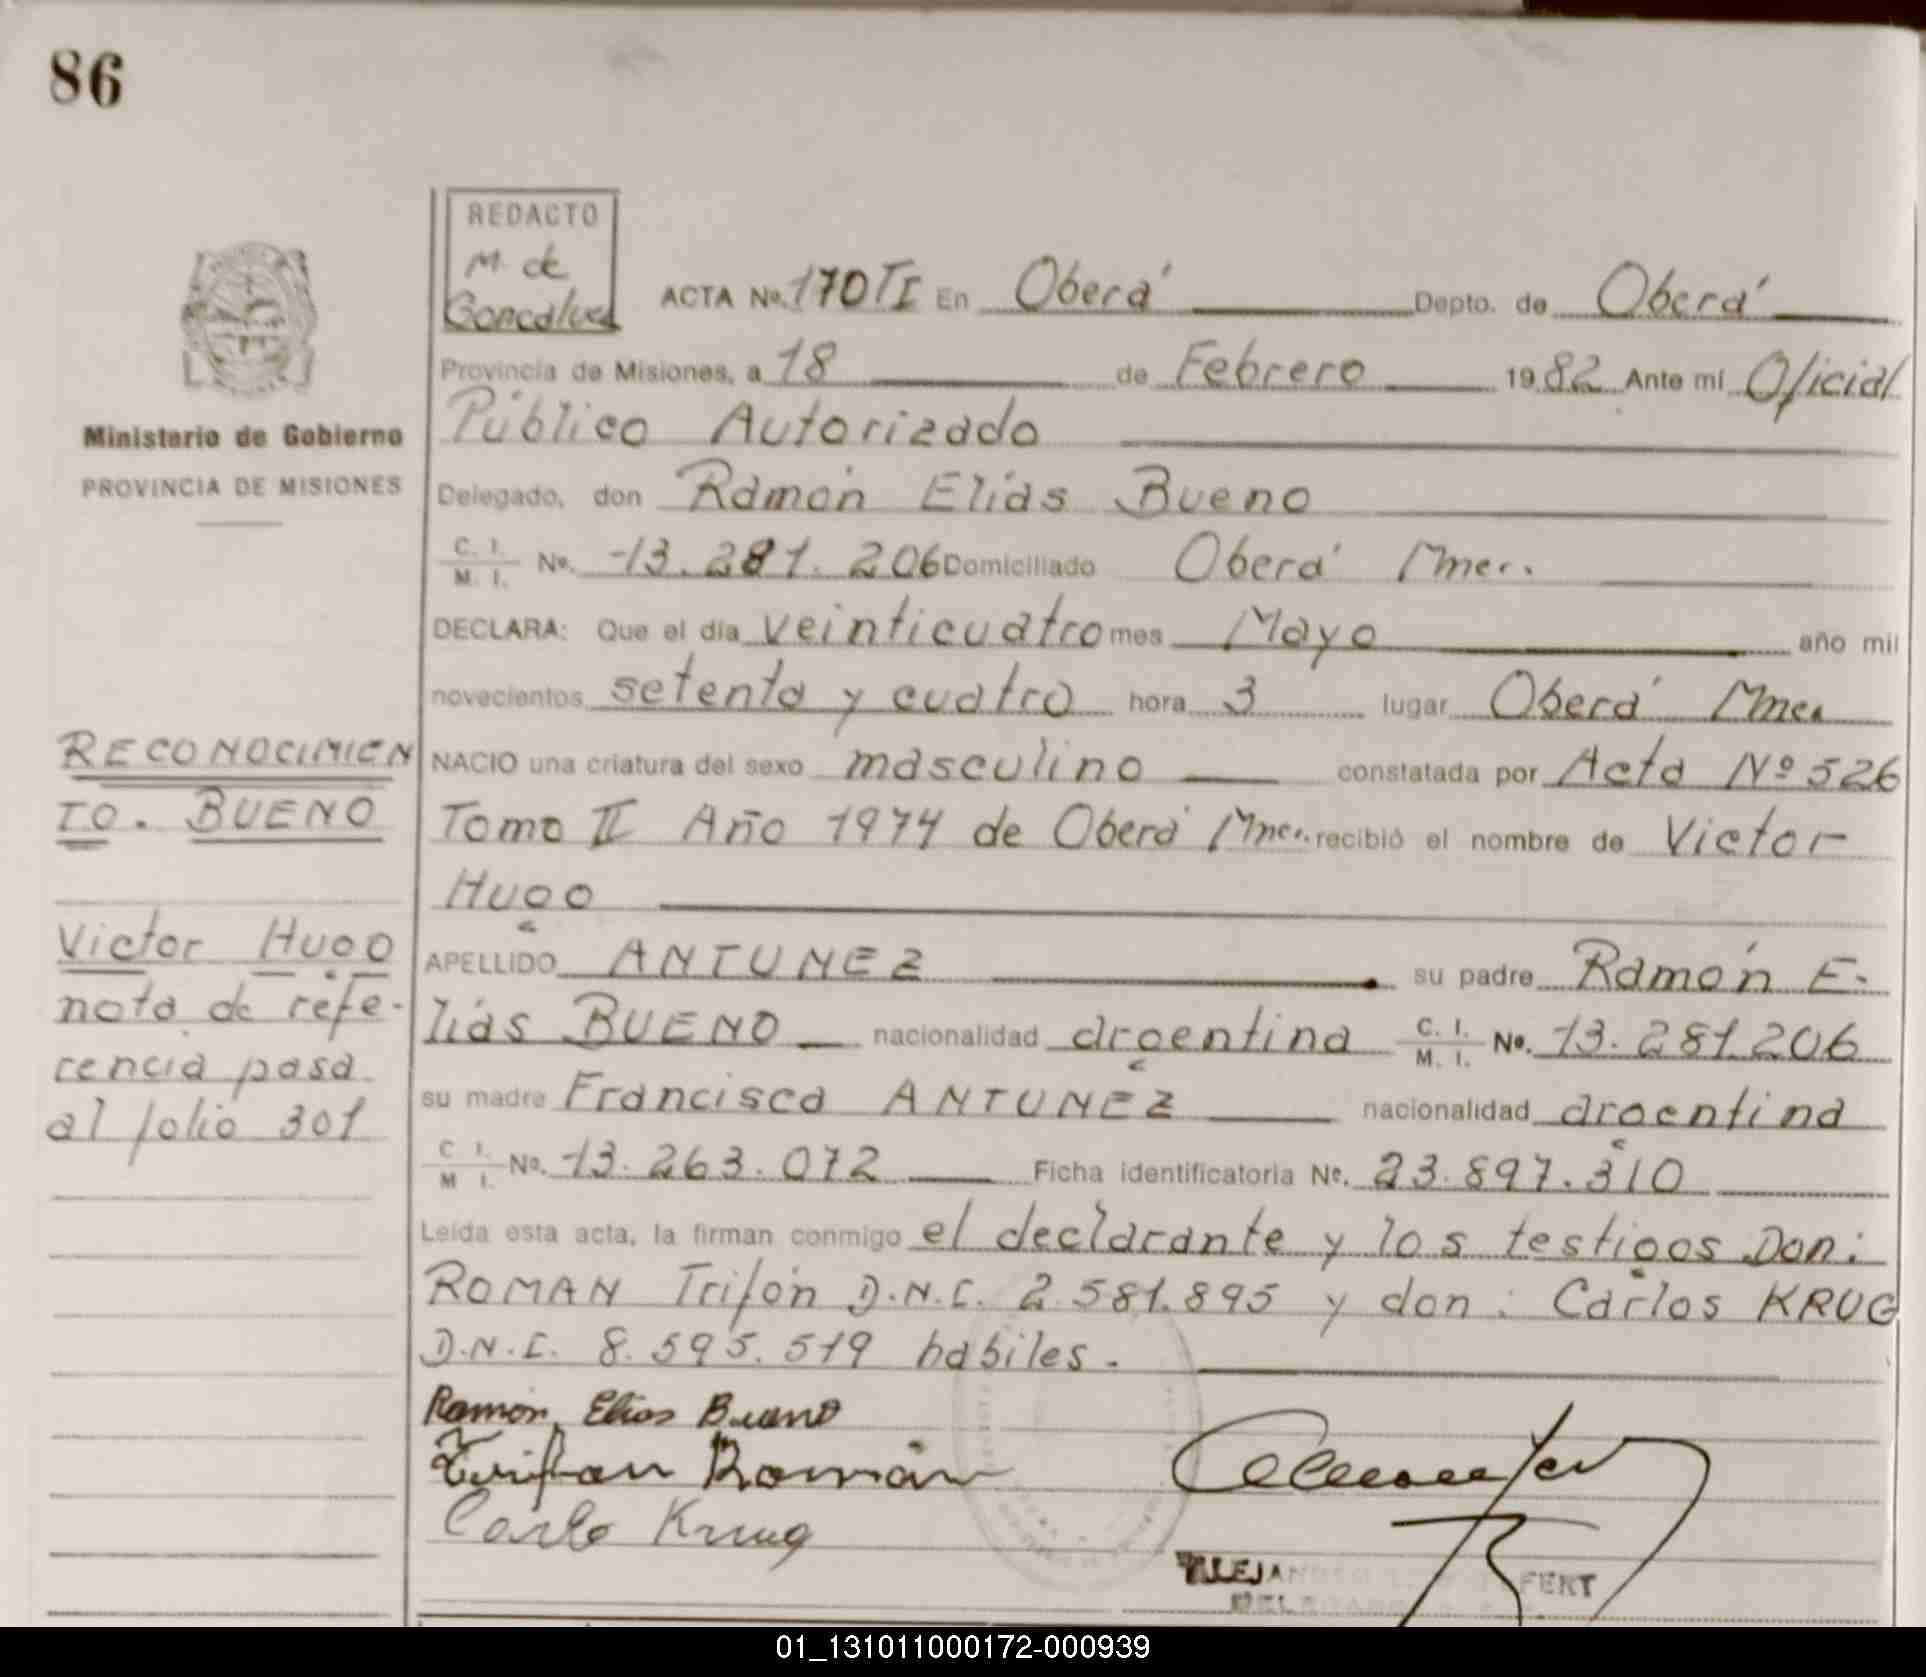 86
REDACTO
M. de
Goncalves
ACTA No. 170 TI En Oberá Depto. de Oberá
Provincia de Misiones, a 18 de Febrero 1982 Ante mí Oficial
Público Autorizado
Delegado, don Ramón Elías Bueno
C. I. M. I. No. 13.281.206 Domiciliado Oberá Mnes.
DECLARA: Que el día veinticuatro mes Mayo año mil
novecientos setenta y cuatro hora 3 lugar Oberá Mnes
NACIO una criatura del sexo masculino constatada por Acta Nº 526
Tomo II Año 1974 de Oberá Mnes. recibió el nombre de Victor
Hugo
APELLIDO ANTUNEZ su padre Ramón E-
lías BUENO nacionalidad argentina C. I. M. I. No. 13.281.206
su madre Francisca ANTUNEZ nacionalidad argentina
C. I. M. I. No. 13.263.072 Ficha identificatoria No. 23.897.310
Leída esta acta, la firman conmigo el declarante y los testigos Don:
ROMAN Trifón D.N.I. 2.581.895 y don: Carlos KRUG
D.N.I. 8.595.519 habiles.
Ramón Elias Bueno
Román
Carlo Krug
FERT
Ministerio de Gobierno
PROVINCIA DE MISIONES
RECONOCIMIEN
TO. BUENO
Victor Hugo
nota de refe-
rencia pasa
al folio 301
01_131011000172-000939